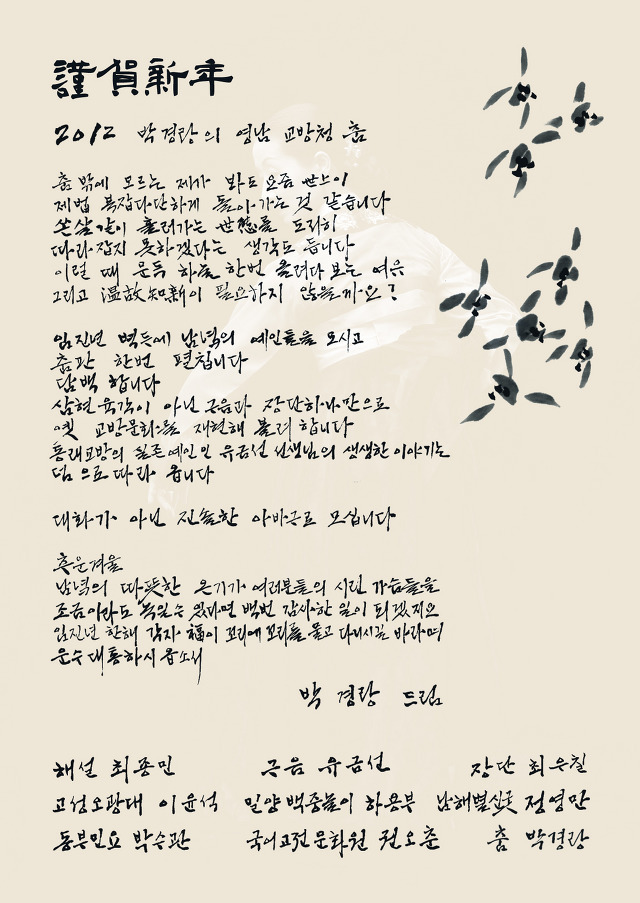 謹賀新年
2012 박경랑의 영남 교방청 춤
춤 밖에 모르는 제가 봐도 요즘 世上이
제법 복잡다단하게 돌아가는 것 같습니다
쏜살같이 흘러가는 世態를 도저히
따라잡지 못하겠다는 생각도 듭니다
이럴 때 문득 하늘 한번 올려다 보는 여유
그리고 溫故知新이 필요하지 않을까요?
임진년 벽두에 남녘의 예인들을 모시고
춤판 한번 펼칩니다
담백 합니다
삼현육각이 아닌 구음과 장단하나만으로
옛 교방문화를 재현해 볼려 합니다
동래교방의 실존예인인 유금선 선생님의 생생한 이야기는
덤으로 따라 옵니다
대화가 아닌 진솔한 아바구로 모십니다
추운겨울
남녘의 따뜻한 온기가 여러분들의 시린 가슴들을
조금이라도 녹일수 있다면 백번 감사한 일이 되겠지요
임진년 한해 각자 福이 꼬리에 꼬리를 물고 다니시길 바라며
운수대통하시옵소서
박 경랑 드림
해설 최종민 구음 유금선 장단 최우칠
고성오광대 이윤석 밀양백중놀이 하용부 남해별신굿 정영만
동부민요 박수관 국어고전문화원 권오춘 춤 박경랑